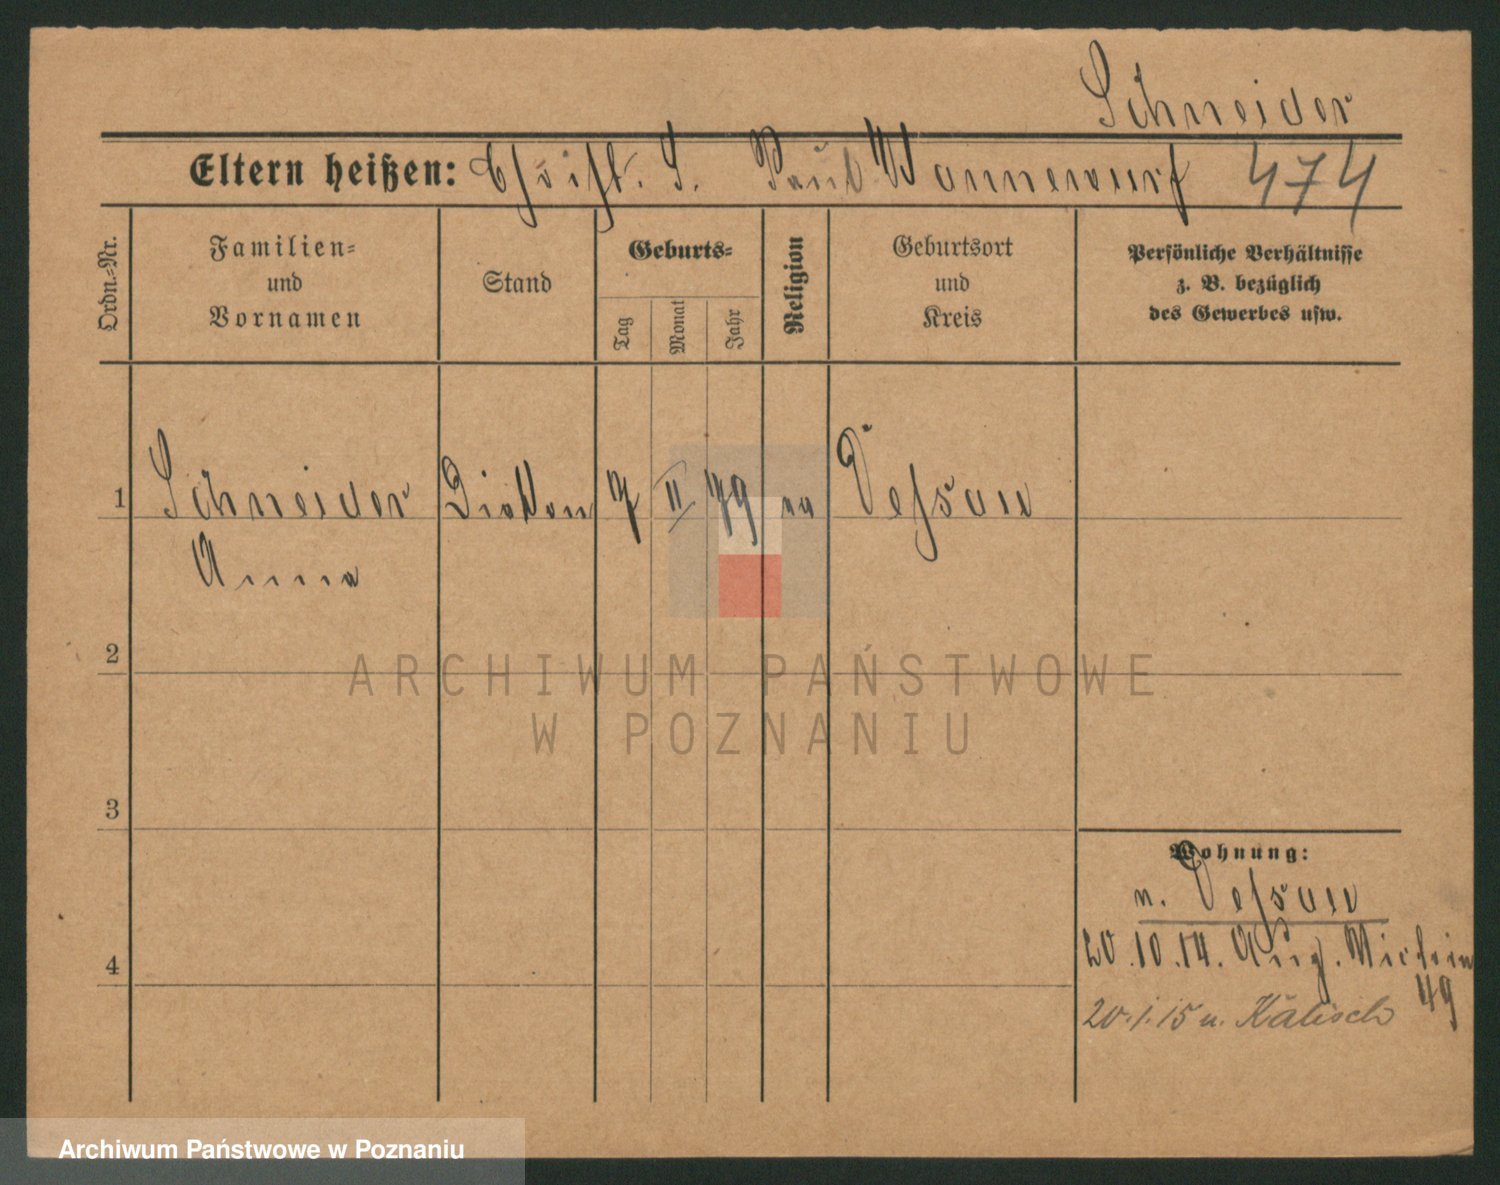 Schneider
Eltern heißen: Christ. S. Paul. Wannewurf 474
Ordn.=Nr.
Familien= und Vornamen
Stand
Geburts=
Tag
Monat
Jahr
Religion
Geburtsort und Kreis
Persönliche Verhältnisse
z. B. bezüglich
des Gewerbes usw.
1 Schneider Diakon 7 II 79 Dessau
Anna
2
3
4
Wohnung:
n. Dessau
20.10.14. Aug.
49
20.1.15 n. Kalisch
ARCHIWUM PAŃSTWOWE
W POZNANIU
Archiwum Państwowe w Poznaniu